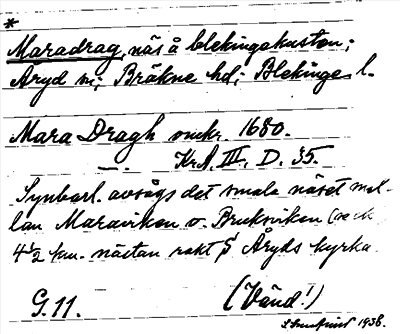 *
Maradrag, näs å blekingekusten;
Åryd sn; Bräkne hd; Blekinge l.
Mara Dragh omkr. 1680.
— . KrA. III, D. 35.
Synbarl. avsågs det smala näset mel-
lan Maraviken o. Bruksviken (
4 1/2 km. nästan rakt S Åryds kyrka.
G. 11. (Vänd!)
1938.